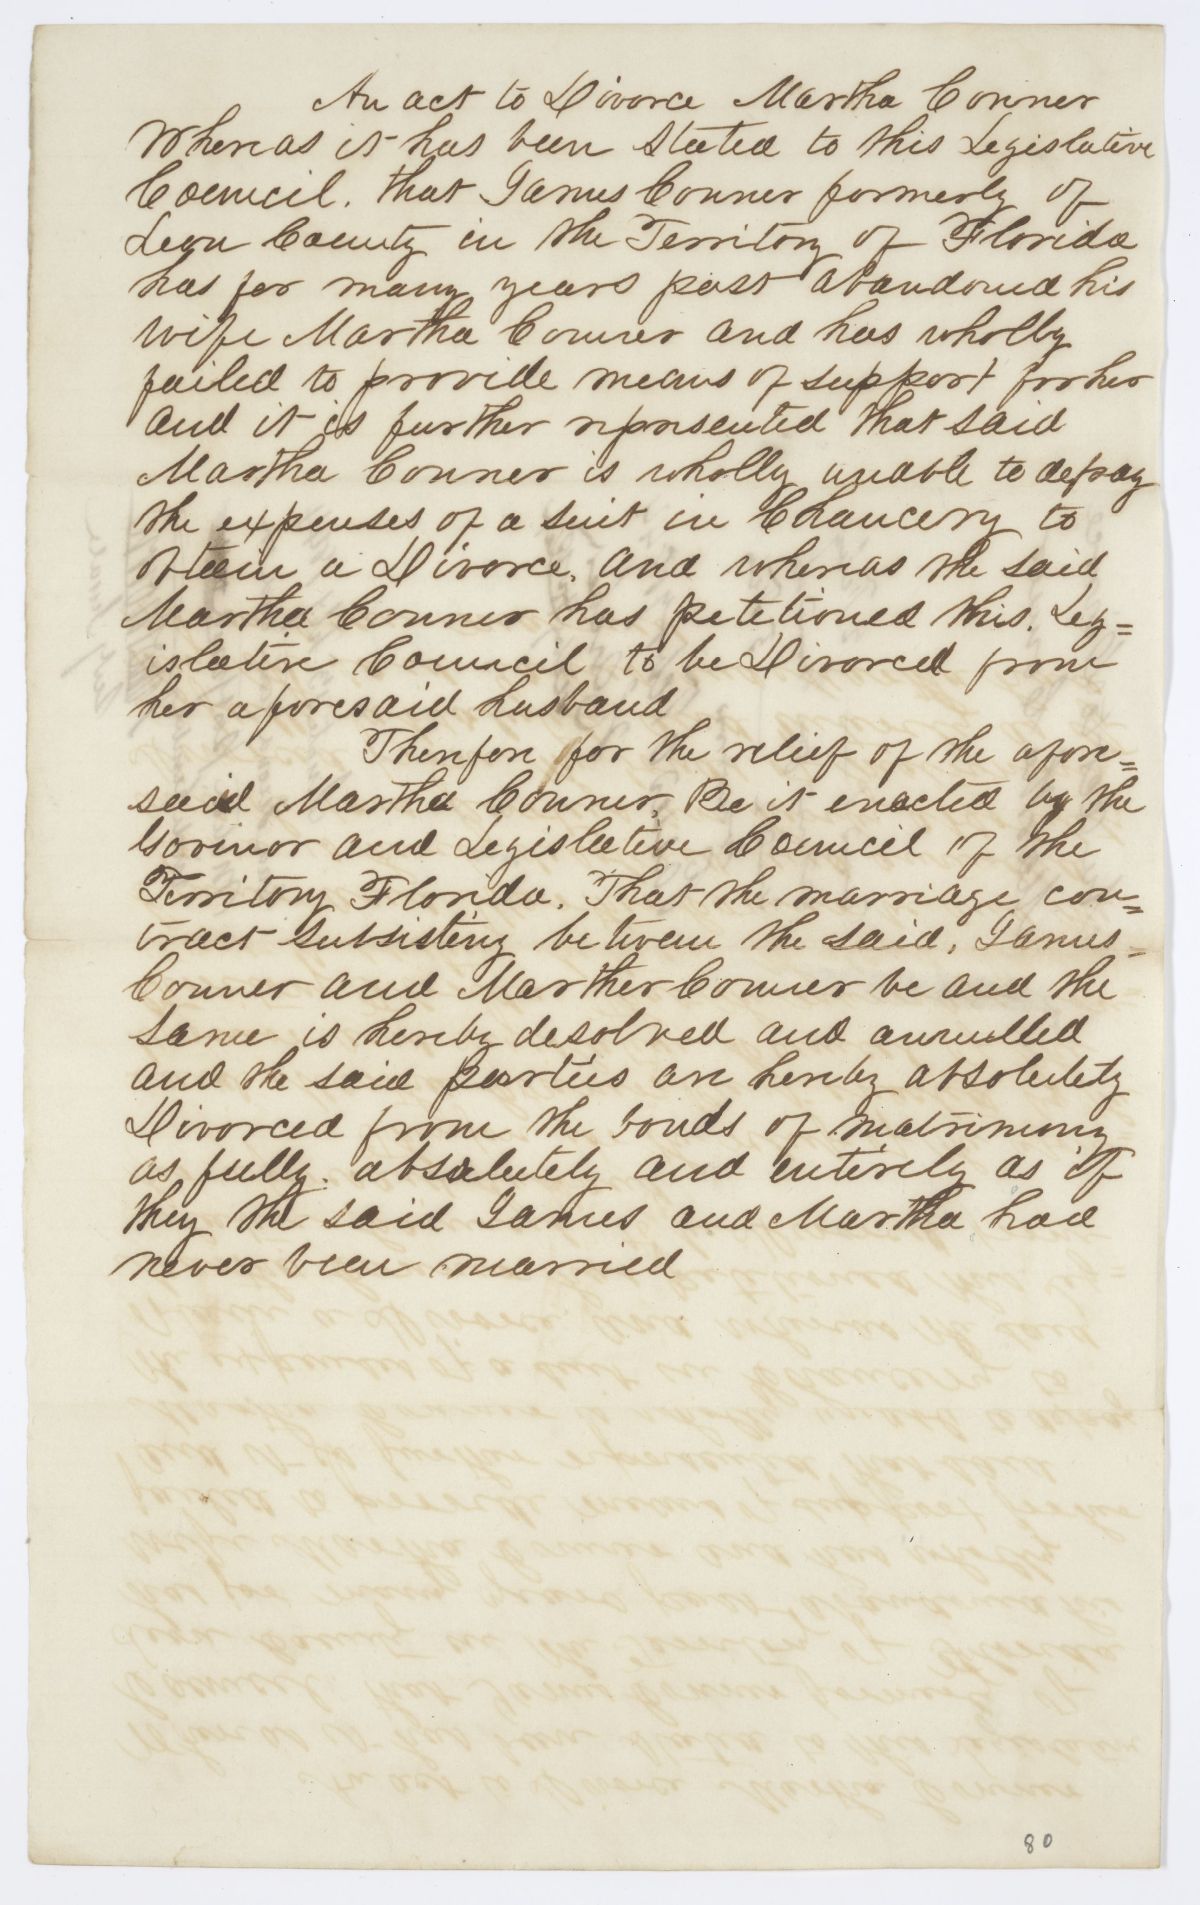 An act to Divorce Martha Conner
Whereas it has been Stated to this Legislative
Council. that James Conner formerly of
Leon County in the Territory of Florida
has for many years past abandoned his
wife Martha Conner and has wholly
failed to provide means of support for her
and it is further represented that said
Martha Conner is wholly unable to defray
the expenses of a suit in Chancery to
obtain a Divorce. and whereas the said
Martha Conner has petetioned this. Leg=
islative Council to be Divorced from
her aforesaid husband
Therefore for the relief of the afore=
said Martha Conner. Be it enacted by the
Govinor and Legislative Council of the
Territory Florida. That the marriage con=
tract subsisting between the said, James
Conner and Marther Conner be and the
same is hereby desolved and annulled
and the said parties are hereby absolutely
Divorced from the bonds of matrimony
as fully. absolutely and entirely as if
they the said James and Martha had
never been married
80